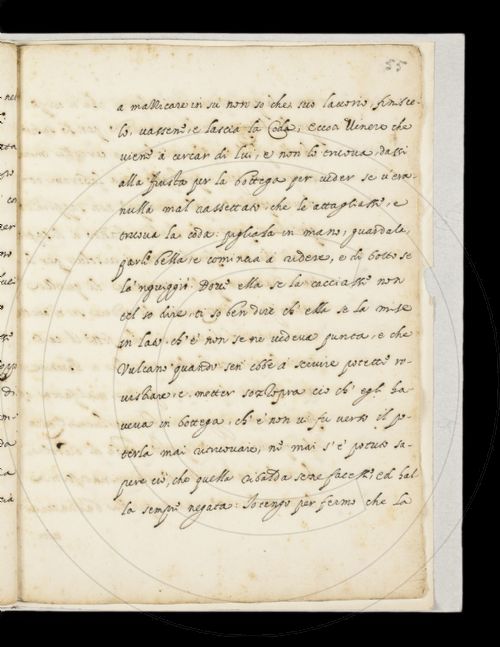 55
a mallicare in su non so che suo lavoro finisce-
lo, vassene, e lascia la Coda, eccoti Venere che
viene à cercar di lui, e non lo truova, dassi
alla frusta per la bottega per veder se v'era
nulla mal rassettato, che le attagliasse, e
truova la coda: pigliala in mano, guardala,
parle bella, e comincia à ridere, e di botto se
la Dove ella se la cacciasse non
vel so dire, ti so ben dire ch'ella se la mise
in lato ch'è non se ne vedeva punta, e che
Vulcano quando sen'ebbe à servire potette ro-
vistiare, e metter sozzopra ciò ch'egli ha-
veva in bottega, ch'è non vi fu verso il po-
terla mai rinvenire, ne mai s'è potuto sa-
pere ciò, che quella ribalda se ne facesse, ed hal-
la sempre negata: Io tengo per fermo che la